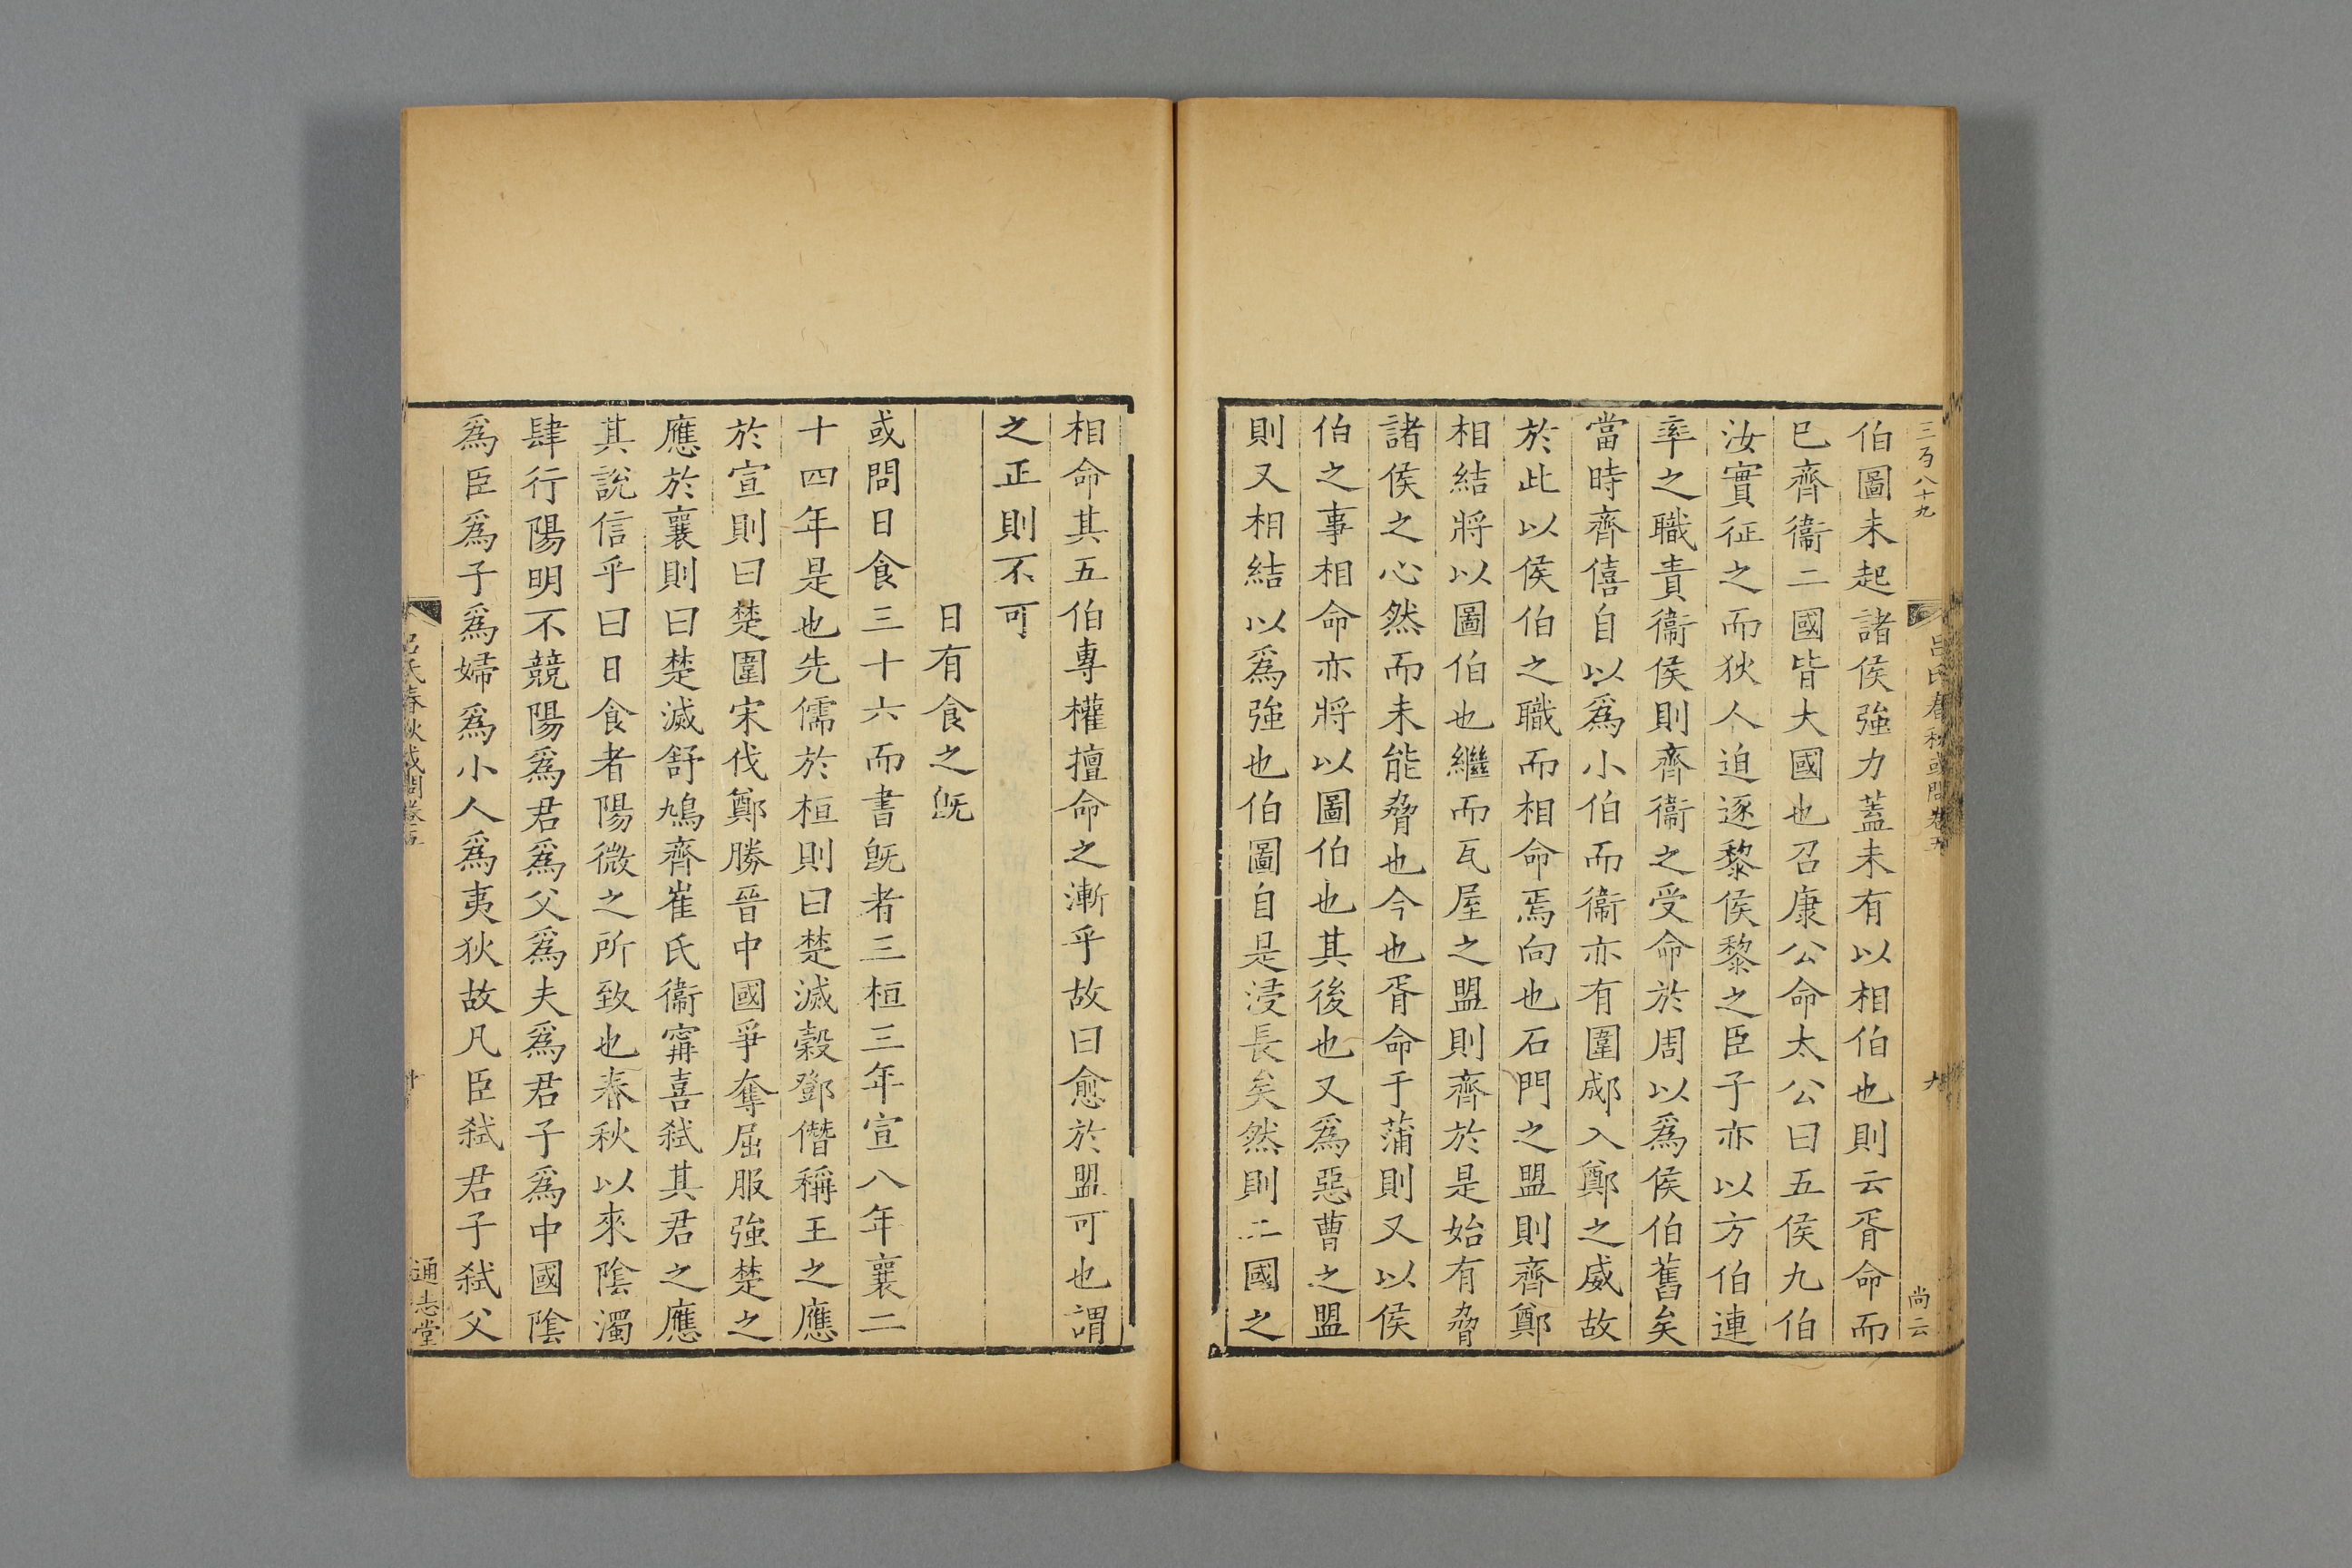 三百八十九
呂氏春秋或問卷五
九
尚云
伯圖未起諸侯強力蓋未有以相伯也則云胥命而
已齊衞二國皆大國也召康公命太公曰五侯九伯
汝實征之而狄人迫逐黎侯黎之臣子亦以方伯連
率之職責衞侯則齊衞之受命於周以爲侯伯舊矣
當時齊僖自以爲小伯而衞亦有圍郕入鄭之威故
於此以侯伯之職而相命焉向也石門之盟則齊鄭
相結將以圖伯也繼而瓦屋之盟則齊於是始有脅
諸侯之心然而未能脅也今也胥命于蒲則又以侯
伯之事相命亦將以圖伯也其後也又爲惡曹之盟
則又相結以爲強也伯圖自是浸長矣然則二國之
相命其五伯專權擅命之漸乎故曰愈於盟可也謂
之正則不可
日有食之旣
或問日食三十六而書旣者三桓三年宣八年襄二
十四年是也先儒於桓則曰楚滅穀鄧僭稱王之應
於宣則曰楚圍宋伐鄭勝晉中國爭奪屈服強楚之
應於襄則曰楚滅舒鳩齊崔氏衞甯喜弒其君之應
其說信乎曰日食者陽微之所致也春秋以來陰濁
肆行陽明不競陽爲君爲父爲夫爲君子爲中國陰
爲臣爲子爲婦爲小人爲夷狄故凡臣弒君子弒父
呂氏春秋或問卷五
十
通志堂